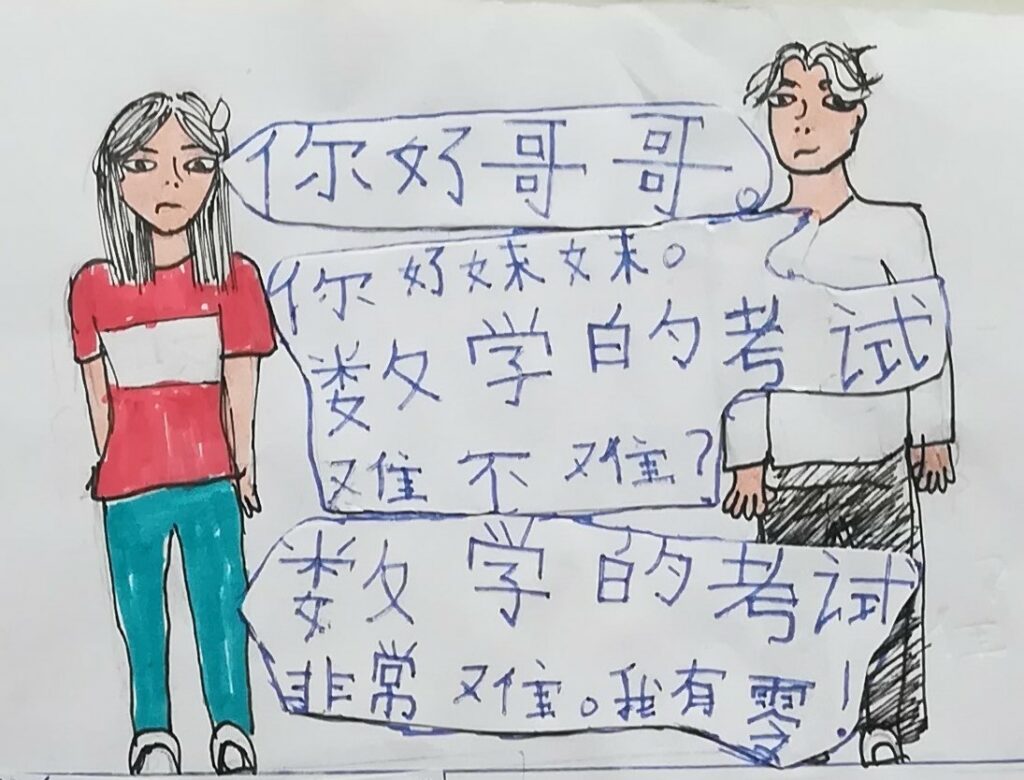 你好哥哥。
你好妹妹。
数学的考试
难不难?
数学的考试
非常难。我有零!